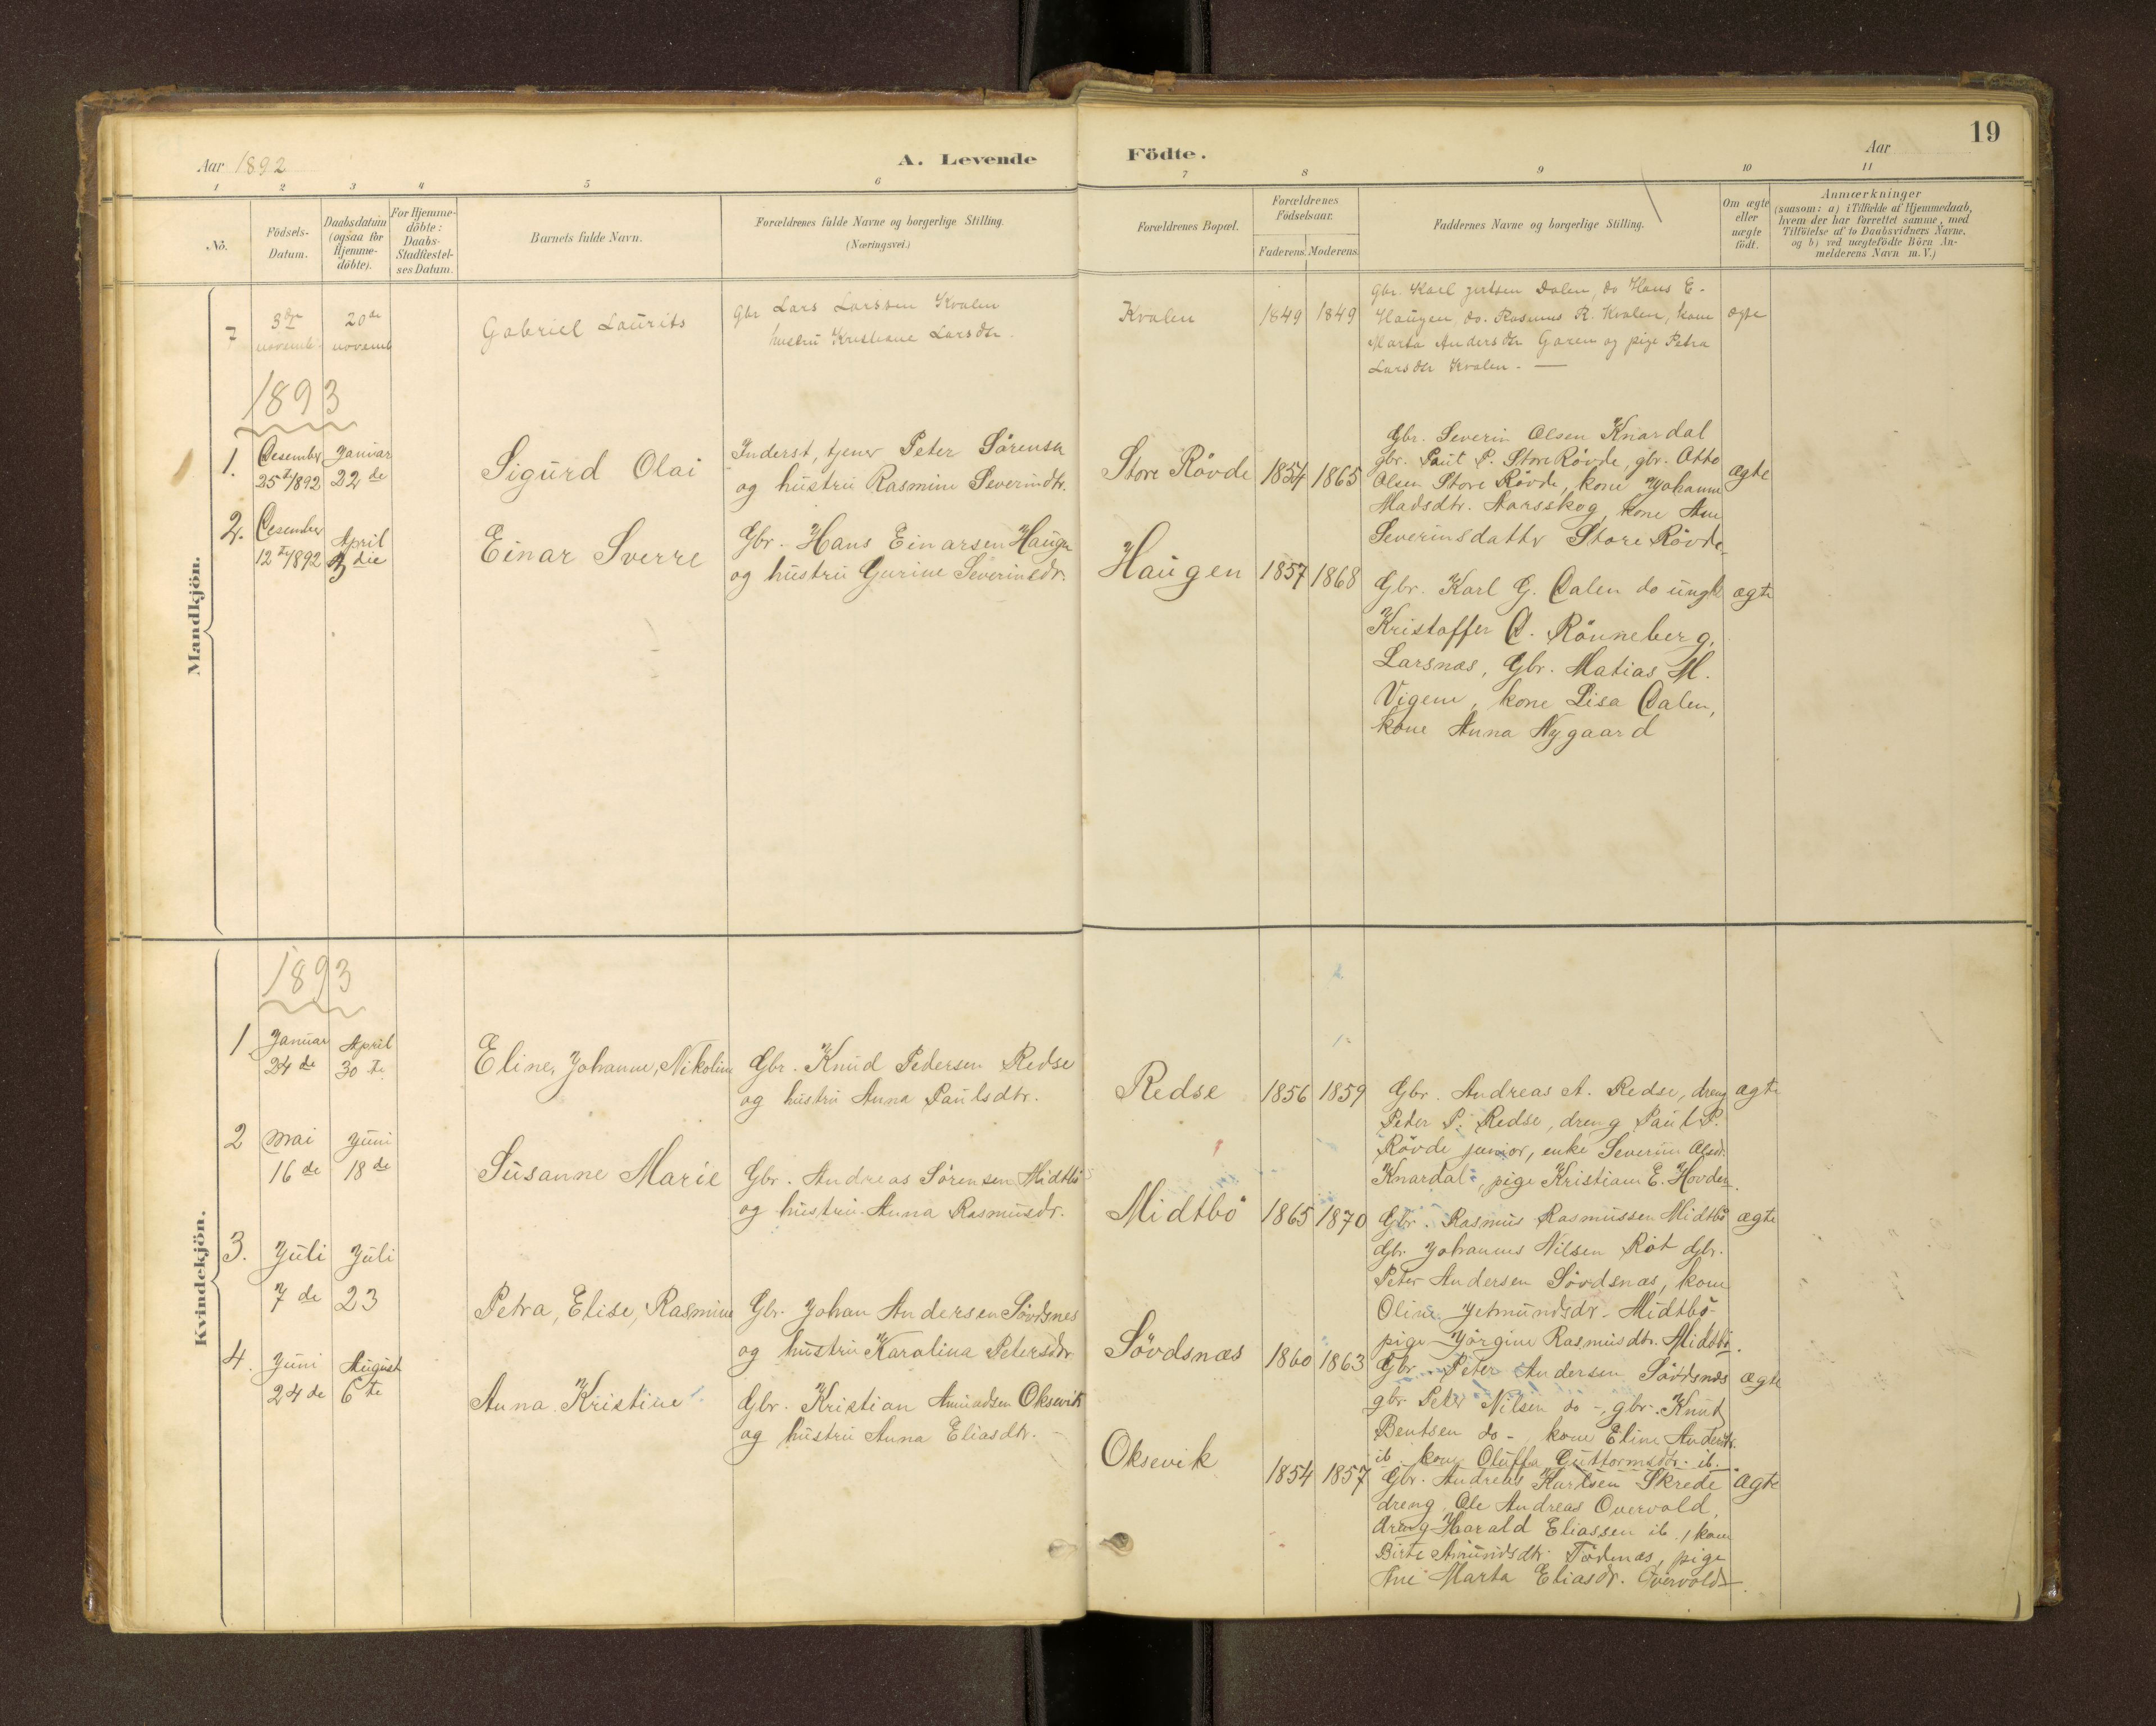 19
Aar 1892
A. Levende Födte.
Aar
1 2 3 4 5 6 7 8 9 10 11
No.
Födsels-Datum.
Daabsdatum (ogsaa for Hjemme-döbte).
For Hjemme-döbte: Daabs-Stadfæstel-ses Datum.
Barnets fulde Navn.
Forældrenes fulde Navne og borgerlige Stilling.
(Næringsvei.)
Forældrenes Bopæl.
Forældrenes Födselsaar.
Faderens. Moderens.
Faddernes Navne og borgerlige Stilling.
Om ægte eller uægte födt.
Anmærkninger
(saasom: a) i Tilfælde af Hjemmedaab,
hvem der har forrettet samme, med
Tilföielse af to Daabsvidners Navne,
og b) ved uægtefödte Börn An-
melderens Navn m. V.)
Mandkjön.
7 3die novemb. 20de novemb
Gabriel Laurits
Gbr Lars Larssen Kvalen
hustru Kristiane Larsdtr.
Kvalen 1849 1849
Gbr. Karl Jertsen Dalen, do Hans E.
Haugen, do. Rasmus R. Kvalen, kone
Marta Andersdtr Garen og pige Petra
Larsdtr Kvalen. —
ægte
1893
1. Desember 25de/1892 Januar 22de
Sigurd Olai
Inderst, tjener Peter Sörensen
og hustru Rasmine Severindtr.
Store Rövde 1854 1865
Gbr. Severin Olsen Knardal
gbr. Paul P. Store Rövde, gbr. Otto
Olsen Store Rövde, kone Johanne
Madsdtr. Aarsskog, kone Ane
Severinsdatter Store Rövde.
ægte
2. Desember 12te/1892 April 3die
Einar Sverre
Gbr. Hans Einarsen Haugen
og hustru Gurine Severinsdr.
Haugen 1857 1868
Gbr. Karl G. Dalen do ungk
Kristoffer D. Rönneberg,
Larsnæs, Gbr. Matias M.
Vigene, kone Lisa Dalen,
kone Anna Nygaard
ægte
Kvindekjön.
1893
1 Januar 24de April 30te
Eline, Johanne, Nikoline
Gbr. Knud Pedersen Redse
og hustru Anna Paulsdtr.
Redse 1856 1859
Gbr. Andreas A. Redse, dreng
Peter P. Redse, dreng Paul P.
Rövde junior, enke Severine Olsd.
Knardal, pige Kristiane E. Hovden.
ægte
2 Mai 16de Juni 18de
Susanne Marie
Gbr. Andreas Sörensen Midtbö
og hustru Anna Rasmusdr.
Midtbö 1865 1870
Gbr. Rasmus Rasmussen Midtbö
Gbr. Johannes Nilsen Röt Gbr.
Peter Andersen Sövdsnæs, kone
Oline Jetmundsdr. Midtbö
pige Jörgine Rasmusdtr. Midtbö.
ægte
3. Juli 7de Juli 23
Petra, Elise, Rasmine
Gbr. Johan Andersen Sövdsnes
og hustru Karolina Petersdtr
Sövdsnæs 1860 1863
Gbr. Peter Andersen Sövdsnæs
gbr Peter Nilsen do -, gbr. Knud
Bentsen do -, kone Eline Andersdr.
ib. kone Oluffa Guttormsdtr. ib.
ægte
4. Juni 24de August 6te
Anna Kristine
Gbr. Kristian Amundsen Oksevik
og hustru Anna Eliasdtr.
Oksevik 1854 1857
Gbr. Andreas Karlsen Skrede
dreng Ole Andreas Overvold,
dreng Harald Eliassen ib., kone
Birte Amundsdtr. Födenæs, pige
Ane Marta Eliasdr. Overvold.
ægte